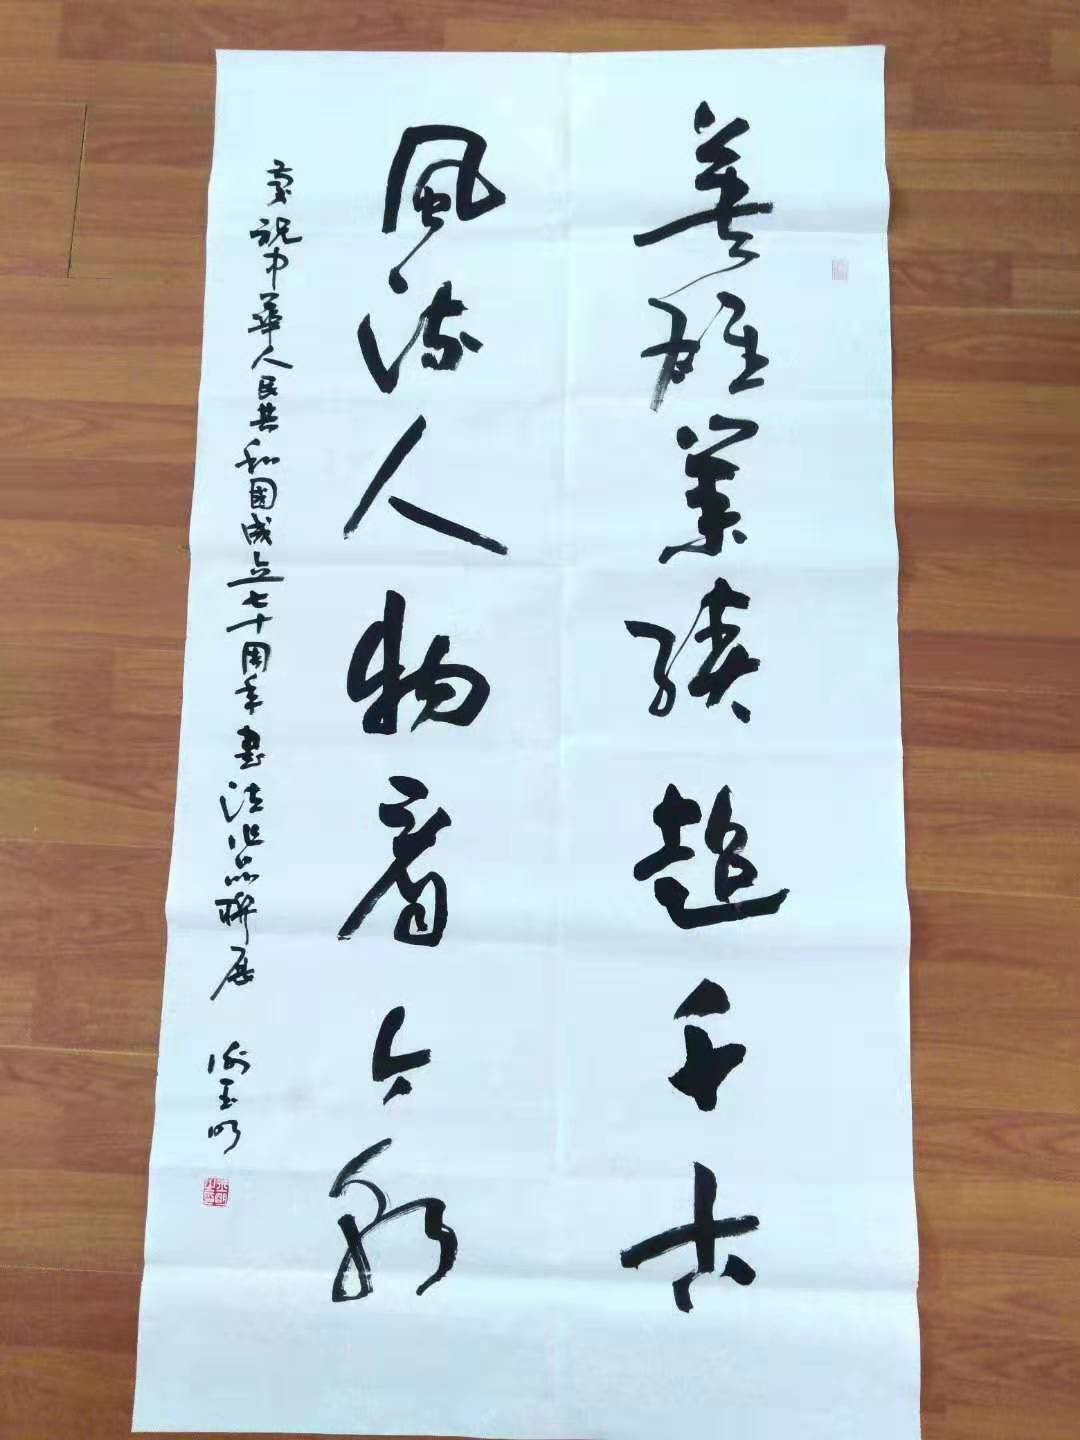 英雄業績超千古
風流人物看今朝
慶祝中華人民共和國成立七十周年書法作品聯展
玉明